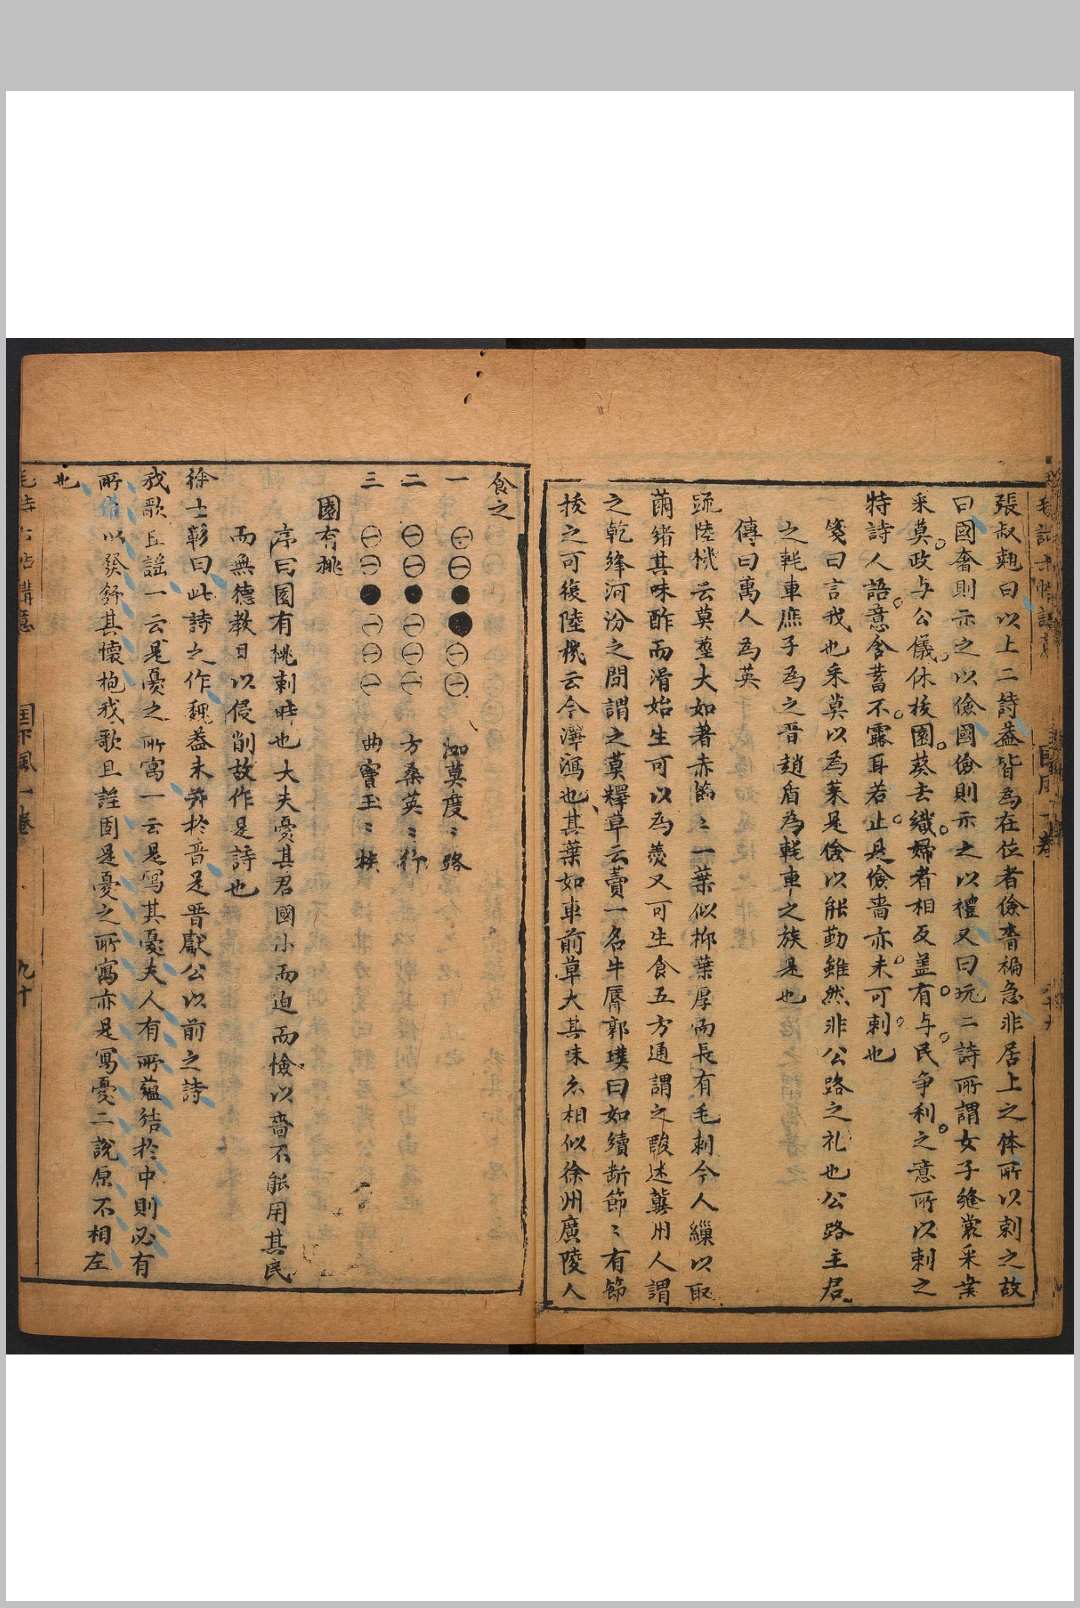 張叔翹曰以上二詩葢皆為在位者儉嗇褊急非居上之体所以刺之故
曰國奢則示之以儉國儉則示之以禮又曰玩二詩所謂女子縫裳采桑
采莫政与公儀休拔園葵去織婦者相反盖有与民争利之意所以刺之
特詩人語意含蓄不露耳若止是儉嗇亦未可刺也
箋曰言我也采莫以為菜是儉以能勤雖然非公路之礼也公路主君
之軞車庶子為之晋趙盾為軞車之族是也
傳曰萬人為英
疏陸機云莫莖大如著赤節〻一葉似柳葉厚而長有毛刺今人繅以取
蘭緒其味酢而滑始生可以為羮又可生食五方通謂之酸迷冀州人謂
之乾絳河汾之間謂之莫釋草云藚一名牛脣郭璞曰如續断節〻有節
拔之可復陸機云今澤瀉也其葉如車前草大其味亦相似徐州廣陵人
食之
一 ㊀㊀●●㊀㊀ 洳莫度〻路
二 ㊀㊀●㊀㊀㊀ 方桑英〻行
三 ㊀㊀●㊀㊀㊀ 曲藚玉〻族
園有桃
序曰園有桃刺時也大夫憂其君國小而迫而儉以嗇不能用其民
而無德教日以侵削故作是詩也
徐士彰曰此詩之作魏葢未并於晋是晋獻公以前之詩
我歌且謡一云是憂之所寓一云是寫其憂夫人有所蘊结於中則必有
所借以發舒其懷抱我歌且謡固是憂之所寓亦是寫憂二說原不相左
也